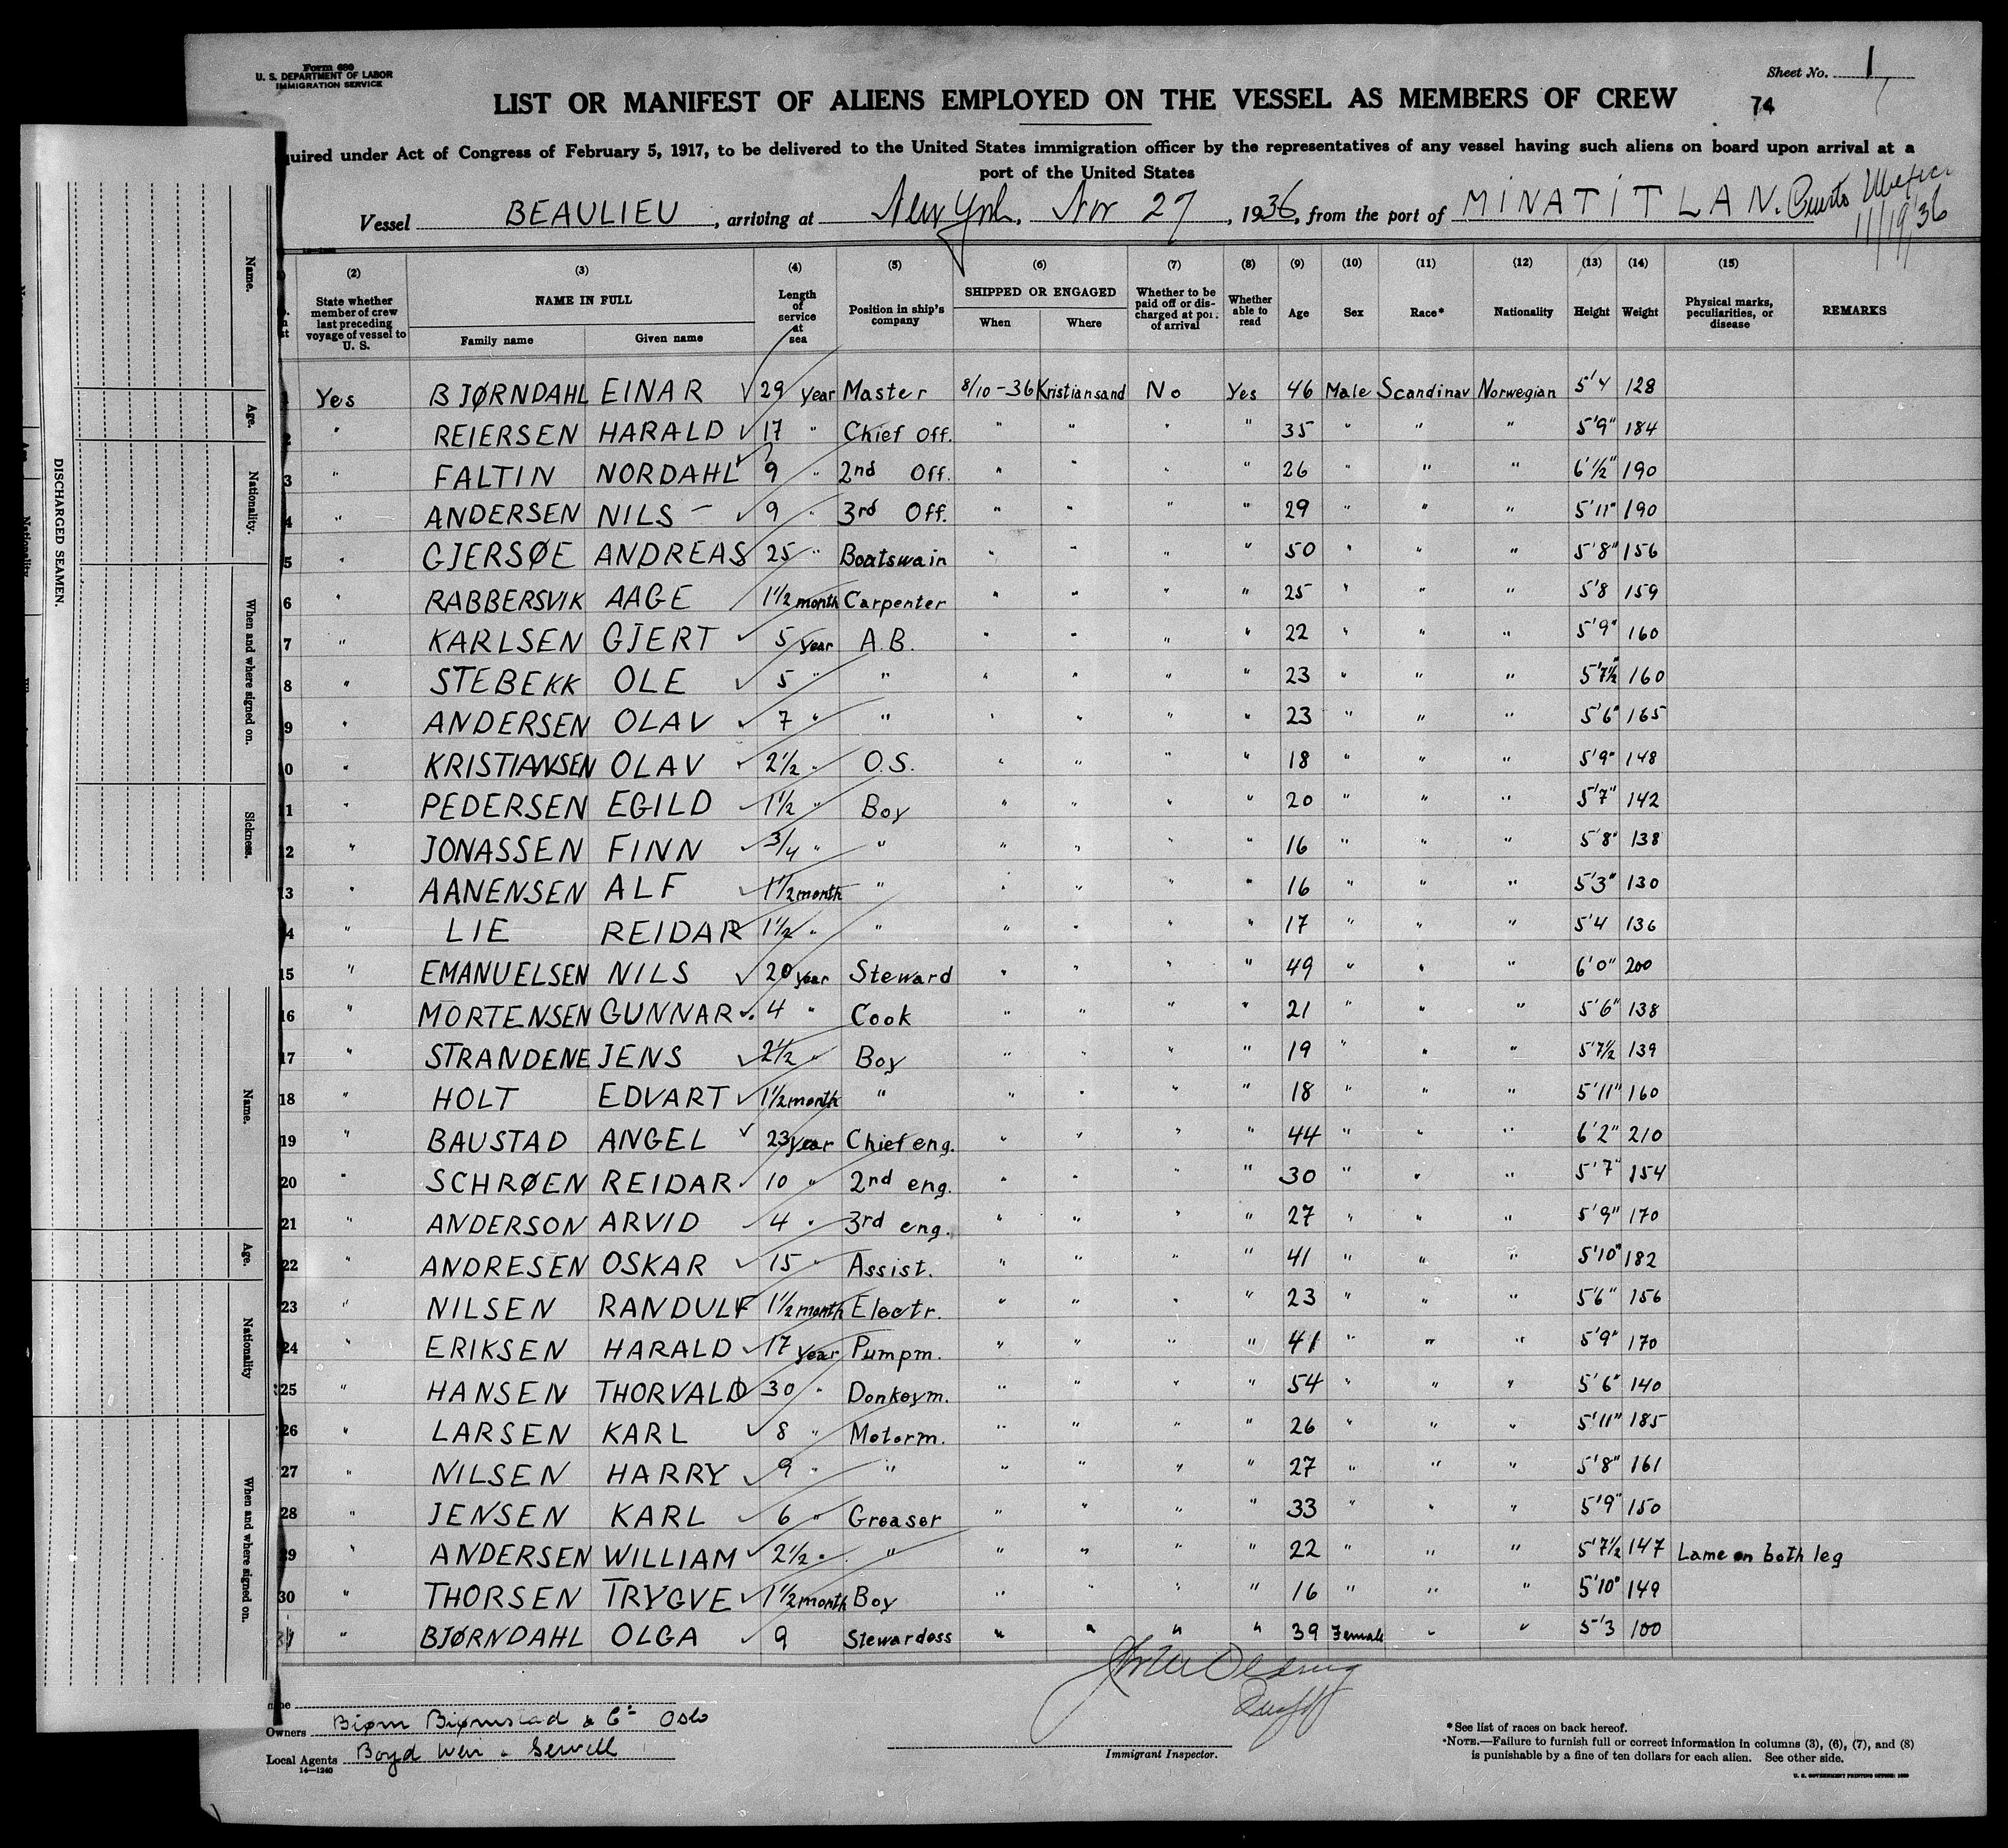 Form 689
U. S. DEPARTMENT OF LABOR
IMMIGRATION SERVICE
Sheet No. 1
LIST OR MANIFEST OF ALIENS EMPLOYED ON THE VESSEL AS MEMBERS OF CREW
74
quired under Act of Congress of February 5, 1917, to be delivered to the United States immigration officer by the representatives of any vessel having such aliens on board upon arrival at a
port of the United States
Vessel BEAULIEU, arriving at New York, Nov 27, 1936, from the port of MINATITLAN. Puerto Mexico
11/19/36
(2) (3) (4) (5) (6) (7) (8) (9) (10) (11) (12) (13) (14) (15)
State whether member of crew last preceding voyage of vessel to U. S. NAME IN FULL Family name Given name Length of service at sea Position in ship's company SHIPPED OR ENGAGED When Where Whether to be paid off or discharged at port of arrival Whether able to read Age Sex Race* Nationality Height Weight Physical marks, peculiarities, or disease REMARKS
Yes BJØRNDAHL EINAR 29 year Master 8/10-36 Kristiansand No Yes 46 Male Scandinav Norwegian 5'4 128
2 " REIERSEN HARALD 17 " Chief Off. " " " " 35 " " " 5'9" 184
3 " FALTIN NORDAHL 9 " 2nd Off. " " " " 26 " " " 6'1/2" 190
4 " ANDERSEN NILS 9 " 3rd Off. " " " " 29 " " " 5'11" 190
5 " GJERSØE ANDREAS 25 " Boatswain " " " " 50 " " " 5'8" 156
6 " RABBERSVIK AAGE 1 1/2 month Carpenter " " " " 25 " " " 5'8 159
7 " KARLSEN GJERT 5 year A.B. " " " " 22 " " " 5'9" 160
8 " STEBEKK OLE 5 " " " " " " 23 " " " 5'7 1/2 160
9 " ANDERSEN OLAV 7 " " " " " " 23 " " " 5'6" 165
0 " KRISTIANSEN OLAV 2 1/2 " O.S. " " " " 18 " " " 5'9" 148
11 " PEDERSEN EGILD 1 1/2 " Boy " " " " 20 " " " 5'7" 142
12 " JONASSEN FINN 3/4 " " " " " " 16 " " " 5'8" 138
13 " AANENSEN ALF 1 1/2 month " " " " " 16 " " " 5'3" 130
4 " LIE REIDAR 1 1/2 " " " " " " 17 " " " 5'4 136
15 " EMANUELSEN NILS 20 year Steward " " " " 49 " " " 6'0" 200
16 " MORTENSEN GUNNAR 4 " Cook " " " " 21 " " " 5'6" 138
17 " STRANDENE JENS 2 1/2 " Boy " " " " 19 " " " 5'7 1/2 139
18 " HOLT EDVART 1 1/2 month " " " " " 18 " " " 5'11" 160
19 " BAUSTAD ANGEL 23 year Chief eng. " " " " 44 " " " 6'2" 210
20 " SCHRØEN REIDAR 10 " 2nd eng. " " " " 30 " " " 5'7" 154
21 " ANDERSON ARVID 4 " 3rd eng. " " " " 27 " " " 5'9" 170
22 " ANDRESEN OSKAR 15 " Assist. " " " " 41 " " " 5'10" 182
23 " NILSEN RANDULF 1 1/2 month Electr. " " " " 23 " " " 5'6" 156
24 " ERIKSEN HARALD 17 year Pumpm. " " " " 41 " " " 5'9" 170
25 " HANSEN THORVALD 30 " Donkeym. " " " " 54 " " " 5'6" 140
26 " LARSEN KARL 8 " Motorm. " " " " 26 " " " 5'11" 185
27 " NILSEN HARRY 9 " " " " " " 27 " " " 5'8" 161
28 " JENSEN KARL 6 " Greaser " " " " 33 " " " 5'9" 150
29 " ANDERSEN WILLIAM 2 1/2 " " " " " " 22 " " " 5'7 1/2 147 Lame on both leg
30 " THORSEN TRYGVE 1 1/2 month Boy " " " " 16 " " " 5'10" 149
31 " BJØRNDAHL OLGA 9 Stewardess " " " " 39 Female " " 5'3 100
Owners Biørn Biørnstad & Co Oslo
Local Agents Boyd Weir & Sewell
14—1240
Immigrant Inspector.
*See list of races on back hereof.
*NOTE.—Failure to furnish full or correct information in columns (3), (6), (7), and (8)
is punishable by a fine of ten dollars for each alien. See other side.
U. S. GOVERNMENT PRINTING OFFICE: 1930
DISCHARGED SEAMEN.
Name.
Age.
Nationality.
When and where signed on.
Sickness.
Name.
Age.
Nationality
When and where signed on.